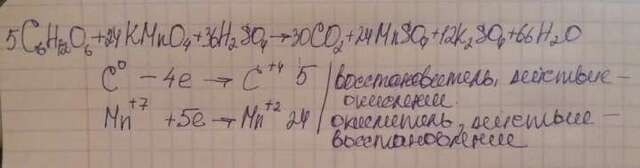 5C₆H₁₂O₆+24KMnO₄+36H₂SO₄→30CO₂+24MnSO₄+12K₂SO₄+66H₂O
C⁰ − 4e → C⁺⁴ 5 | восстановитель, действие –
окисление
Mn⁺⁷ +5e → Mn⁺² 24 | окислитель, действие –
восстановление